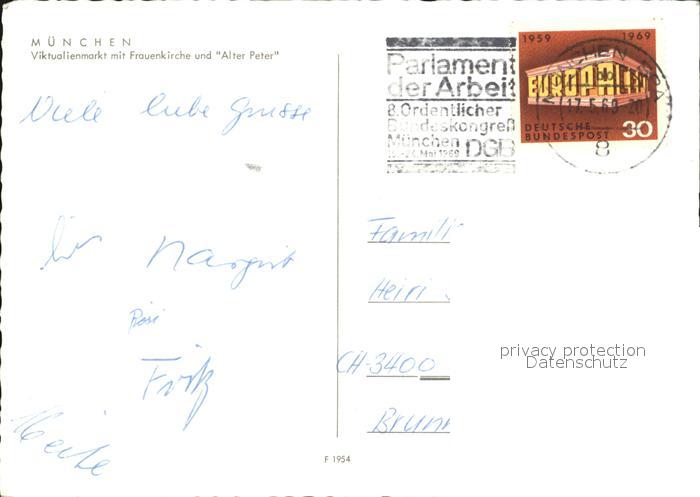 MÜNCHEN
Viktualienmarkt mit Frauenkirche und "Alter Peter"
Viele liebe Grüsse
Margrit
Rösi
Fritz
F 1954
Parlament
der Arbeit
8. Ordentlicher
Bundeskongreß
München
Mai 1969 DGB
1959 1969
EUROPA CEPT
DEUTSCHE
BUNDESPOST 30
MÜNCHEN
17.5.69-20
8
Famili
Heiri
CH-3400
Brunn
privacy protection
Datenschutz